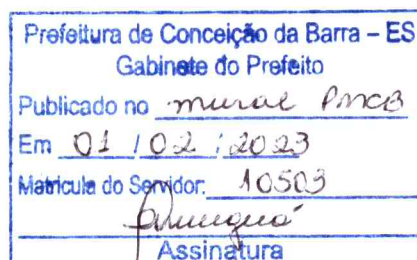 Prefeitura de Conceição da Barra – ES
Gabinete do Prefeito
Publicado no mural PMCB
Em 01 / 02 / 2023
Matrícula do Servidor: 10503
Assinatura